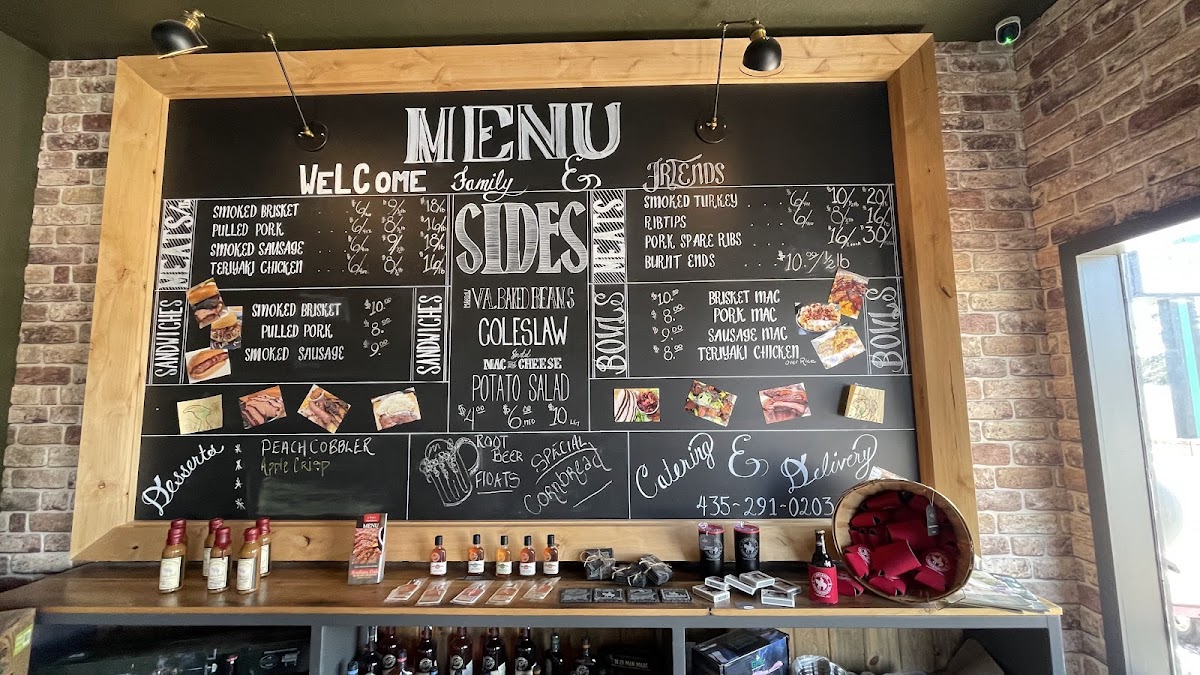 MENU
WELCOME Family & FRIENDS
MEATS
SMOKED BRISKET . . . . $6/ $9/ $18/lb
PULLED PORK . . . . $6/ $8/ $16/lb
SMOKED SAUSAGE . . . . $6/ $9/ $18/lb
TERIYAKI CHICKEN . . . . $6/ $8/ $16/lb
SANDWICHES
SMOKED BRISKET $10.00
PULLED PORK $8.00
SMOKED SAUSAGE $9.00
SANDWICHES
SIDES
VA. BAKED BEANS
COLESLAW
MAC CHEESE
POTATO SALAD
$4.00 $6.00 MED $10 LRG
MEATS
SMOKED TURKEY . . . . $6/ $10/ $20/
RIBTIPS . . . . $6/ $8/ $16/
PORK SPARE RIBS . . . . $16/ $30/
BURNT ENDS . . $10.00/½lb
BOWLS
$10.00 BRISKET MAC
$8.00 PORK MAC
$9.00 SAUSAGE MAC
$8.00 TERIYAKI CHICKEN
OVER RICE
BOWLS
Desserts
PEACH COBBLER
Apple Crisp
ROOT
BEER
FLOATS
SPECIAL
CORNBREAD
Catering & Delivery
435-291-0203
MENU